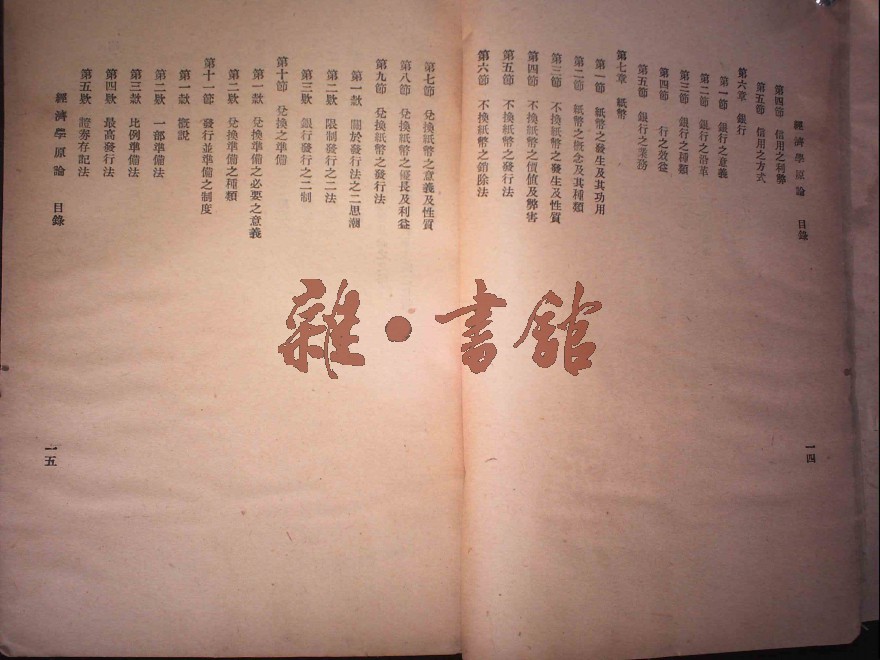 經濟學原論 目錄
第四節 信用之利弊
第五節 信用之方式
第六章 銀行
第一節 銀行之意義
第二節 銀行之沿革
第三節 銀行之種類
第四節 行之效益
第五節 銀行之業務
第七章 紙幣
第一節 紙幣之發生及其功用
第二節 紙幣之概念及其種類
第三節 不換紙幣之發生及性質
第四節 不換紙幣之價值及弊害
第五節 不換紙幣之發行法
第六節 不換紙幣之銷除法
一四
第七節 兌換紙幣之意義及性質
第八節 兌換紙幣之優長及利益
第九節 兌換紙幣之發行法
第一款 關於發行法之二思潮
第二款 限制發行之二法
第三款 銀行發行之二制
第十節 兌換之準備
第一款 兌換準備之必要之意義
第二款 兌換準備之種類
第十一節 發行並準備之制度
第一款 概說
第二款 一部準備法
第三款 比例準備法
第四款 最高發行法
第五款 證券存記法
經濟學原論 目錄
一五
雜·書館